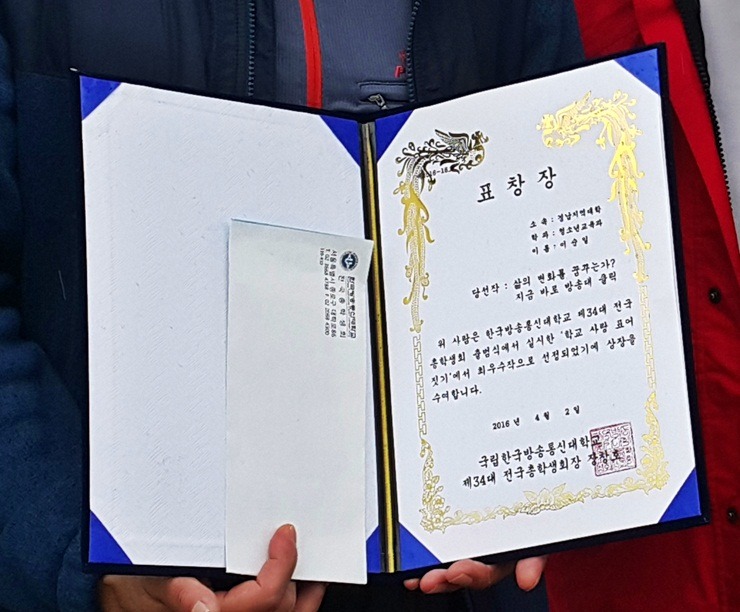 표창장
소 속 : 경남지역대학
학 과 : 청소년교육과
이 름 : 이승일
당선작 : 삶의 변화를 꿈꾸는가?
지금 바로 방송대 클릭
위 사람은 한국방송통신대학교 제34대 전국
총학생회 출범식에서 실시한 '학교 사랑 표어
짓기'에서 최우수작으로 선정되었기에 상장을
수여합니다.
2016 년 4 월 2 일
국립한국방송통신대학교
제34대 전국총학생회장
한국방송통신대학교
전국총학생회
서울특별시 종로구 대학로86